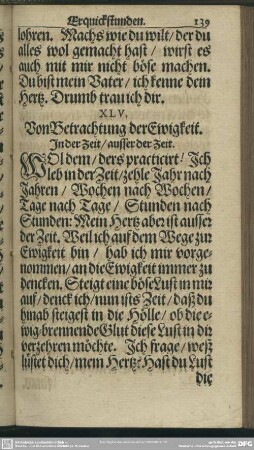 Erquickstunden. 139
lohren. Machs wie du wilt / der du
alles wol gemacht hast / wirst es
auch mit mir nicht böse machen.
Du bist mein Vater / ich kenne dem
Hertz. Drumb trau ich dir.
XLV.
Von Betrachtung der Ewigkeit.
In der Zeit / ausser der Zeit.
WOl dem / ders practicirt / Ich
leb in der Zeit / zehle Jahr nach
Jahren / Wochen nach Wochen /
Tage nach Tage / Stunden nach
Stunden: Mein Hertz aber ist ausser
der Zeit. Weil ich auf dem Wege zur
Ewigkeit bin / hab ich mir vorge-
nommen / an die Ewigkeit immer zu
dencken. Steigt eine böse Lust in mir
auf / denck ich / nun ists Zeit / daß du
hinab steigest in die Hölle / ob die e-
wig-brennende Glut diese Lust in dir
verzehren möchte. Ich frage / weß
lüstet dich / mein Hertz? Hast du Lust
die